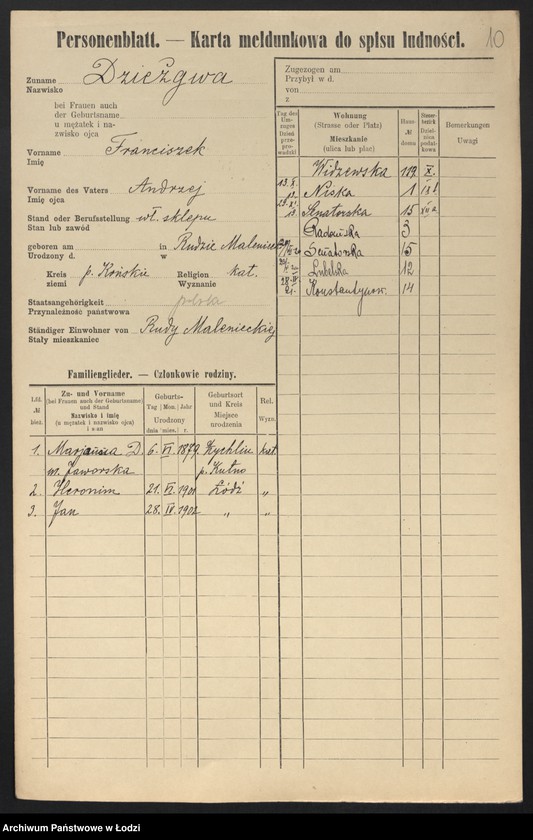 Personenblatt. — Karta meldunkowa do spisu ludności.
10
Zuname
Nazwisko
Dzieżgwa
bei Frauen auch
der Geburtsname
u mężatek i na-
zwisko ojca
Vorname
Imię
Franciszek
Vorname des Vaters
Imię ojca
Andrzej
Stand oder Berufsstellung
Stan lub zawód
wł. sklepu
geboren am
Urodzony d.
in
w
Rudzie Malenieck
Kreis
ziemi
p. Końskie
Religion
Wyznanie
kat.
Staatsangehörigkeit
Przynależność państwowa
polska
Ständiger Einwohner von
Stały mieszkaniec
Rudy Malenieckiej
Familienglieder. — Członkowie rodziny.
Lfd.
№
bież.
Zu- und Vorname
(bei Frauen auch der Geburtsname)
und Stand
Nazwisko i imię
(u mężatek i nazwisko ojca)
i stan
Geburts-
Tag | Mon. | Jahr
Urodzony
dnia | mies. | r.
Geburtsort
und Kreis
Miejsce
urodzenia
Rel.
Wyzn.
1. Marjanna D. 6. VI. 1879 Żychlin kat.
w. Jaworska p. Kutno
2. Hieronim 21. VI. 1901 Łódź „
3. Jan 28. IV. 1902 „ „
Zugezogen am
Przybył w d.
von
z
Tag des
Um-
zuges
Dzień
prze-
pro-
wadzki
Wohnung
(Strasse oder Platz)
Mieszkanie
(ulica lub plac)
Haus-
№
domu
Steuer-
bezirk
Dziel-
nica
podat-
kowa
Bemerkungen
Uwagi
Widzewska 119. X.
Niska 1
Senatorska 15 VII a
Radomska 3
Senatorska 15
Lubelska 12
Konstantynow. 14
Archiwum Państwowe w Łodzi